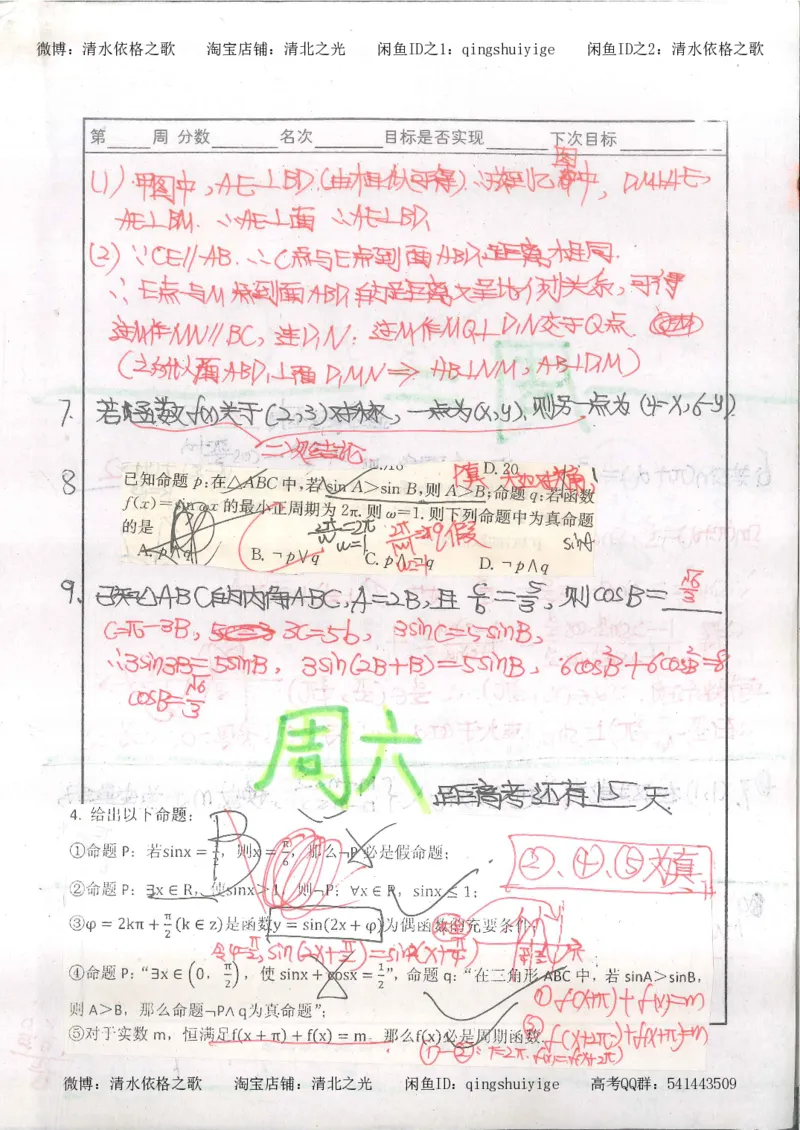 微博：清水依格之歌 淘宝店铺：清北之光 闲鱼ID之1：qingshuiyige 闲鱼ID之2：清水依格之歌
第____周 分数______ 名次______ 目标是否实现______ 下次目标______
图
(1) 甲图中，AE⊥BD（由相似可得）∴放到乙中，DM⊥AE，
AE⊥BM. ∴AE⊥面 ∴AE⊥BD
(2) ∵CE∥AB. ∴C点与E点到面ABD₁距离相同.
∵E点与M点到面ABD₁的距离又呈比例关系，可得
过M作MN∥BC，连D₁N；过M作MQ⊥D₁N交于Q点.
(之所以面ABD₁⊥面D₁MN ⇒ AB⊥NM，AB⊥D₁M)
7. 若函数f(x)关于(2,3)对称，一点为(x,y)，则另一点为(4-x,6-y)
二次结论
D. 20
8 已知命题 p:在△ABC 中,若 sin A＞sin B,则 A＞B;命题 q:若函数
真 大边对大角
f(x)=sin ωx 的最小正周期为 2π,则 ω=1.则下列命题中为真命题
的是
2π/ω=2π ω=1 2π/|ω|=2π q假
sinA
A. p∧q B. ¬p∨q C. p∧¬q D. ¬p∧q
9. 已知△ABC的内角ABC，A=2B，且 c/b=5/3，则cosB= √6/3
C=π-3B， 3c=5b， 3sinC=5sinB，
∴3sin3B=5sinB， 3sin(2B+B)=5sinB， 6cos²B+6cos²B=8
cosB=√6/3
周六
距离高考还有15天
4. 给出以下命题：
B
①命题 P：若sinx = 1/2，则x = π/6，那么¬P 必是假命题；
②、④、⑤为真
②命题 P：∃x ∈ R，使sinx＞1，则¬P：∀x ∈ R，sinx ≤ 1；
③φ = 2kπ + π/2 (k ∈ z)是函数y = sin(2x + φ)为偶函数的充要条件；
令φ=π/2, sin(2x+π/2)=sin2(x+π/4)
④命题 P：“∃x ∈ (0， π/2)，使 sinx + cosx = 1/2”，命题 q：“在三角形 ABC 中，若 sinA＞sinB，
则 A＞B，那么命题¬P∧ q为真命题”；
①f(x+π)+f(x)=m
⑤对于实数 m，恒满足f(x + π) + f(x) = m，那么f(x)必是周期函数.
②f(x+2π)+f(x+π)=m
①-②：T=2π. f(x)=f(x+2π)
微博：清水依格之歌 淘宝店铺：清北之光 闲鱼ID：qingshuiyige 高考QQ群：541443509